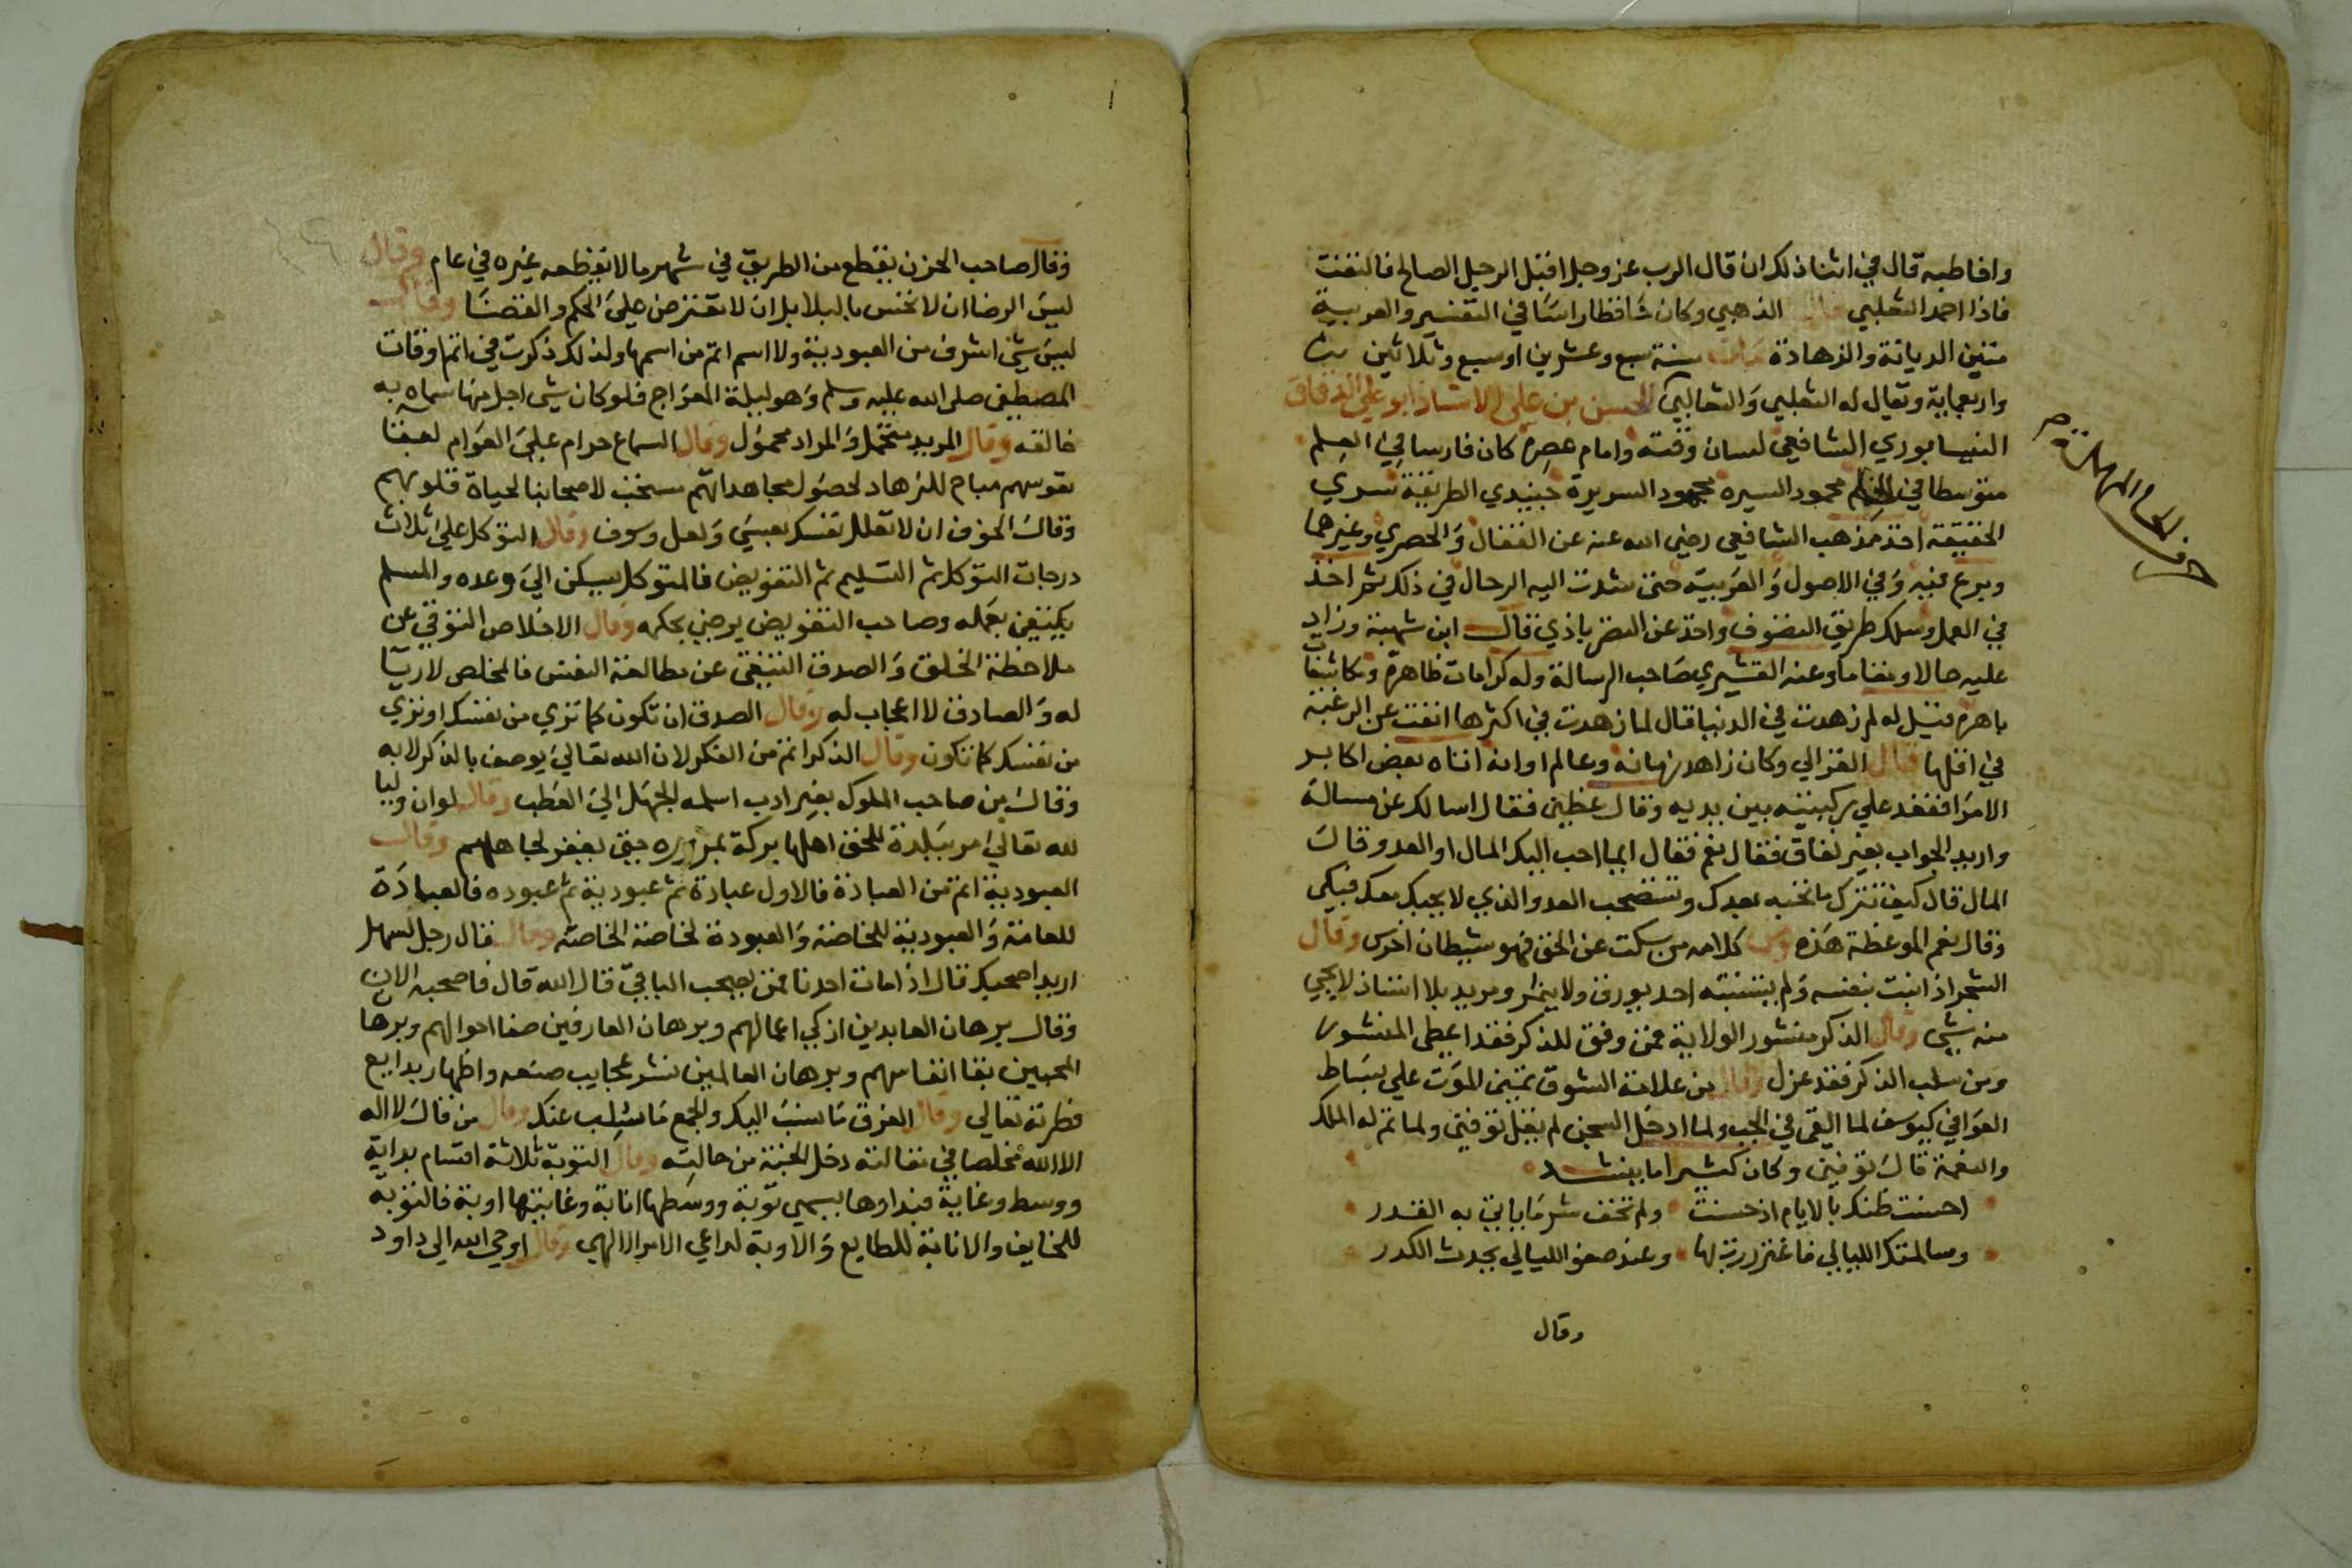 واخاطبه قال في اثنا ذلك ان قال الرب عز وجل اقبل الرجل الصالح فالتفت
فاذا احمد الثعلبي قال الذهبي وكان حافظا راسا في التفسير والعربية
متين الديانة والزهادة مات سنة سبع وعشرين او سبع وثلاثين
واربعماية ويقال له الثعلبي والثعالبي الحسن بن علي الاستاذ ابو علي الدقاق
النيسابوري الشافعي لسان وقته وامام عصره كان فارسا في العلم
متوسطا في محمود السيرة مجهود السريرة جنيدي الطريقة سري
الحقيقة اخذ مذهب الشافعي رضي الله عنه عن القفال والحصري وغيرهما
وبرع فيه وفي الاصول والعربية حتى شدت اليه الرحال في ذلك ثم اخذ
في العمل وسلك طريق التصوف واخذ عن النصراباذي قال ابن شهبة وزاد
عليه حالا ومقاما وعنه القشيري صاحب الرسالة وله كرامات ظاهرة ومكاشفات
باهرة قيل له لم زهدت في الدنيا قال لما زهدت في اكثرها انفت عن الرغبة
في اقلها قال الغزالي وكان زاهد زمانه وعالم اوانه اتاه بعض اكابر
الامرا فقعد على ركبتيه بين يديه وقال عظني فقال اسالك عن مسالة
واريد الجواب بغير نفاق فقال نعم فقال ايما احب اليك المال او العدو قال
المال قال كيف تترك ما تحبه بعدك وتستصحب العدو الذي لا تحبه معك فبكى
وقال نعم الموعظة هذه ومن كلامه من سكت عن الحق فهو شيطان اخرس وقال
الشجر اذا نبت بنفسه ولم يستنبته احد يورق ولا يثمر ومريد بلا استاذ لا يجي
منه شي وقال الذكر منشور الولاية فمن وفق للذكر فقد اعطى المنشور
ومن سلب الذكر فقد عزل وقال من علامة الشوق تمني الموت على بساط
العوافي كيوسف لما القى في الجب ولما ادخل السجن لم يقل توفني ولما تم له الملك
والنعمة قال توفني وكان كثيرا ما ينشد
احسنت ظنك بالايام اذ حسنت ولم تخف شر ما ياتي به القدر
وسالمتك الليالي فاغتررت بها وعند صفو الليالي يحدث الكدر
وقال
وقال صاحب الحزن يقطع من الطريق في شهر ما لا يقطعه غيره في عام وقال
ليس الرضا ان لا تحس بالبلا بل ان لا تعترض على الحكم والقضا وقال
ليس شي اشرف من العبودية ولا اسم اتم من اسمها ولذلك ذكرت في اتم اوقات
المصطفى صلى الله عليه وسلم وهو ليلة المعراج فلو كان شي اجل منها سماه به
خالقه وقال المريد متحمل والمراد محمول وقال السماع حرام على العوام لبقا
نفوسهم مباح للزهاد لحصول مجاهداتهم مستحب لاصحابنا لحياة قلوبهم
وقال الخوف ان لا تعلل نفسك بعسى ولعل وسوف وقال التوكل على ثلاث
درجات التوكل ثم التسليم ثم التفويض فالمتوكل يسكن الى وعده والمسلم
يكتفي بعلمه وصاحب التفويض يرضي بحكمه وقال الاخلاص التوقي عن
ملاحظة الخلق والصدق التنقي عن مطالعة النفس فالمخلص لا ريا
له والصادق لا اعجاب له وقال الصدق ان تكون كما تري من نفسك او تري
من نفسك كما تكون وقال الذكر اتم من الفكر لان الله تعالى يوصف بالذكر لا به
وقال من صاحب الملوك بغير ادب اسلمه الجهل الى العطب وقال لو ان وليا
لله تعالى مر ببلدة للحق اهلها بركة مروره حتى يغفر لجاهلهم وقال
العبودية اتم من العبادة فالاول عبادة ثم عبودية ثم عبوده فالعبادة
للعامة والعبودية للخاصة والعبودة لخاصة الخاصة وقال قال رجل لسهل
اريد اصحبك قال اذا مات احدنا فمن يصحب الباقي قال الله قال فاصحبه الان
وقال برهان العابدين ازكي اعمالهم وبرهان العارفين صفا احوالهم وبرهان
المحبين بقا انفاسهم وبرهان العالمين نشر عجايب صنعه واظهار بدايع
فطرته تعالى وقال الفرق ما نسب اليك والجمع ما سلب عنك وقال من قال لا اله
الا الله مخلصا في مقالته دخل الجنة من حالته وقال التوبة ثلاثة اقسام بداية
ووسط وغاية فبداوها يسمى توبة ووسطها انابة وغايتها اوبة فالتوبة
للخايف والانابة للطايع والاوبة لداعي الامر الالهي وقال اوحى الله الى داود